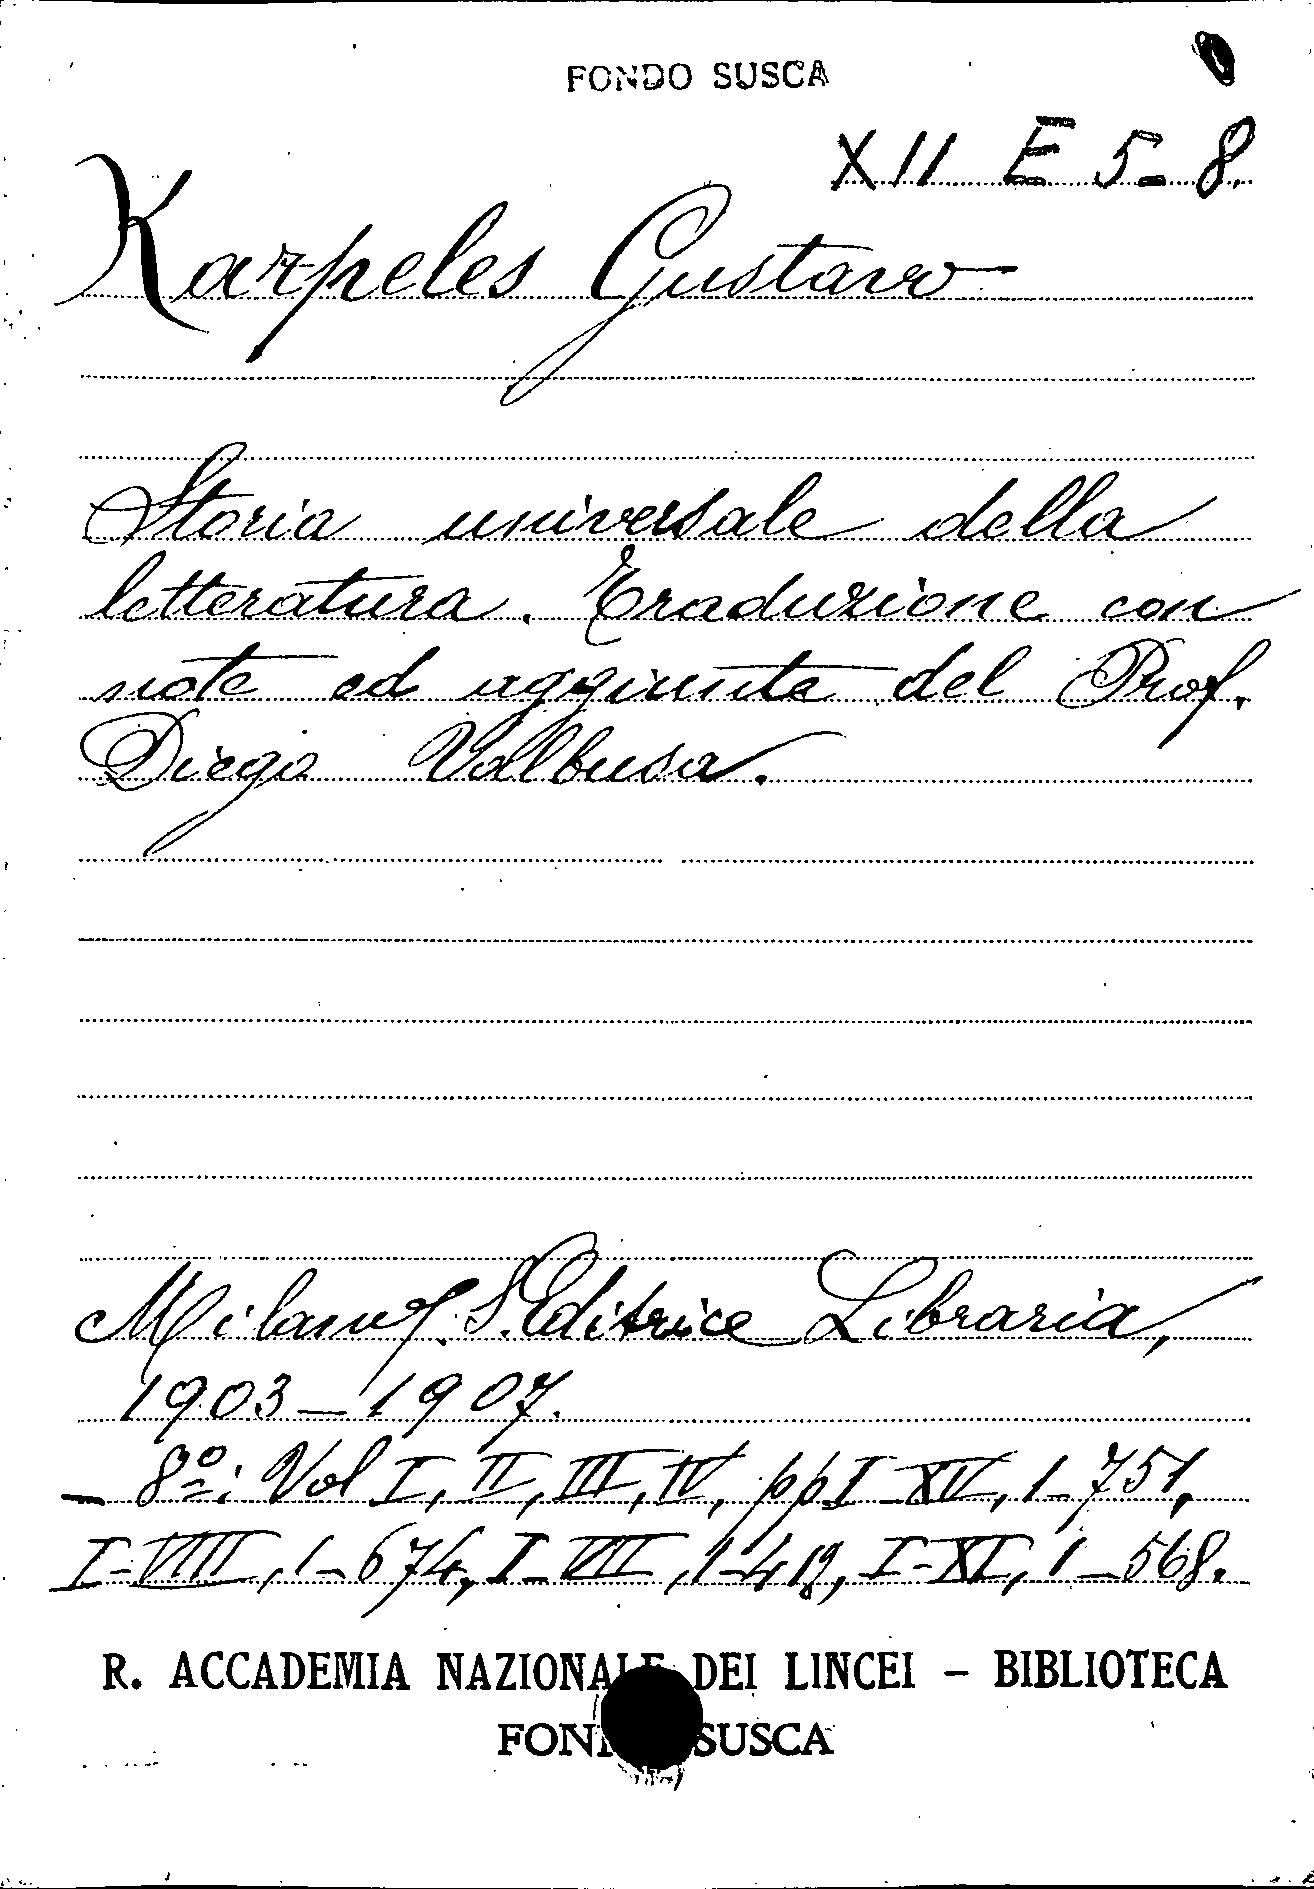 FONDO SUSCA
XII E 5-8.
Karpeles Gustavo
Storia universale della
letteratura. Traduzione con
note ed aggiunte del Prof.
Diego Valbusa.
Milano, S. Editrice Libraria,
1903-1907.
- 8º: Vol I, II, III, IV, pp I-XV, 1-751,
I-VIII, 1-674, I-VII, 1-418, I-XI, 1-568.
R. ACCADEMIA NAZIONALE DEI LINCEI - BIBLIOTECA
FONDO SUSCA